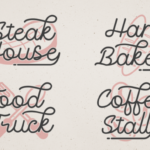 Steak
House
Bake
Food
Truck
Coffe
Stall